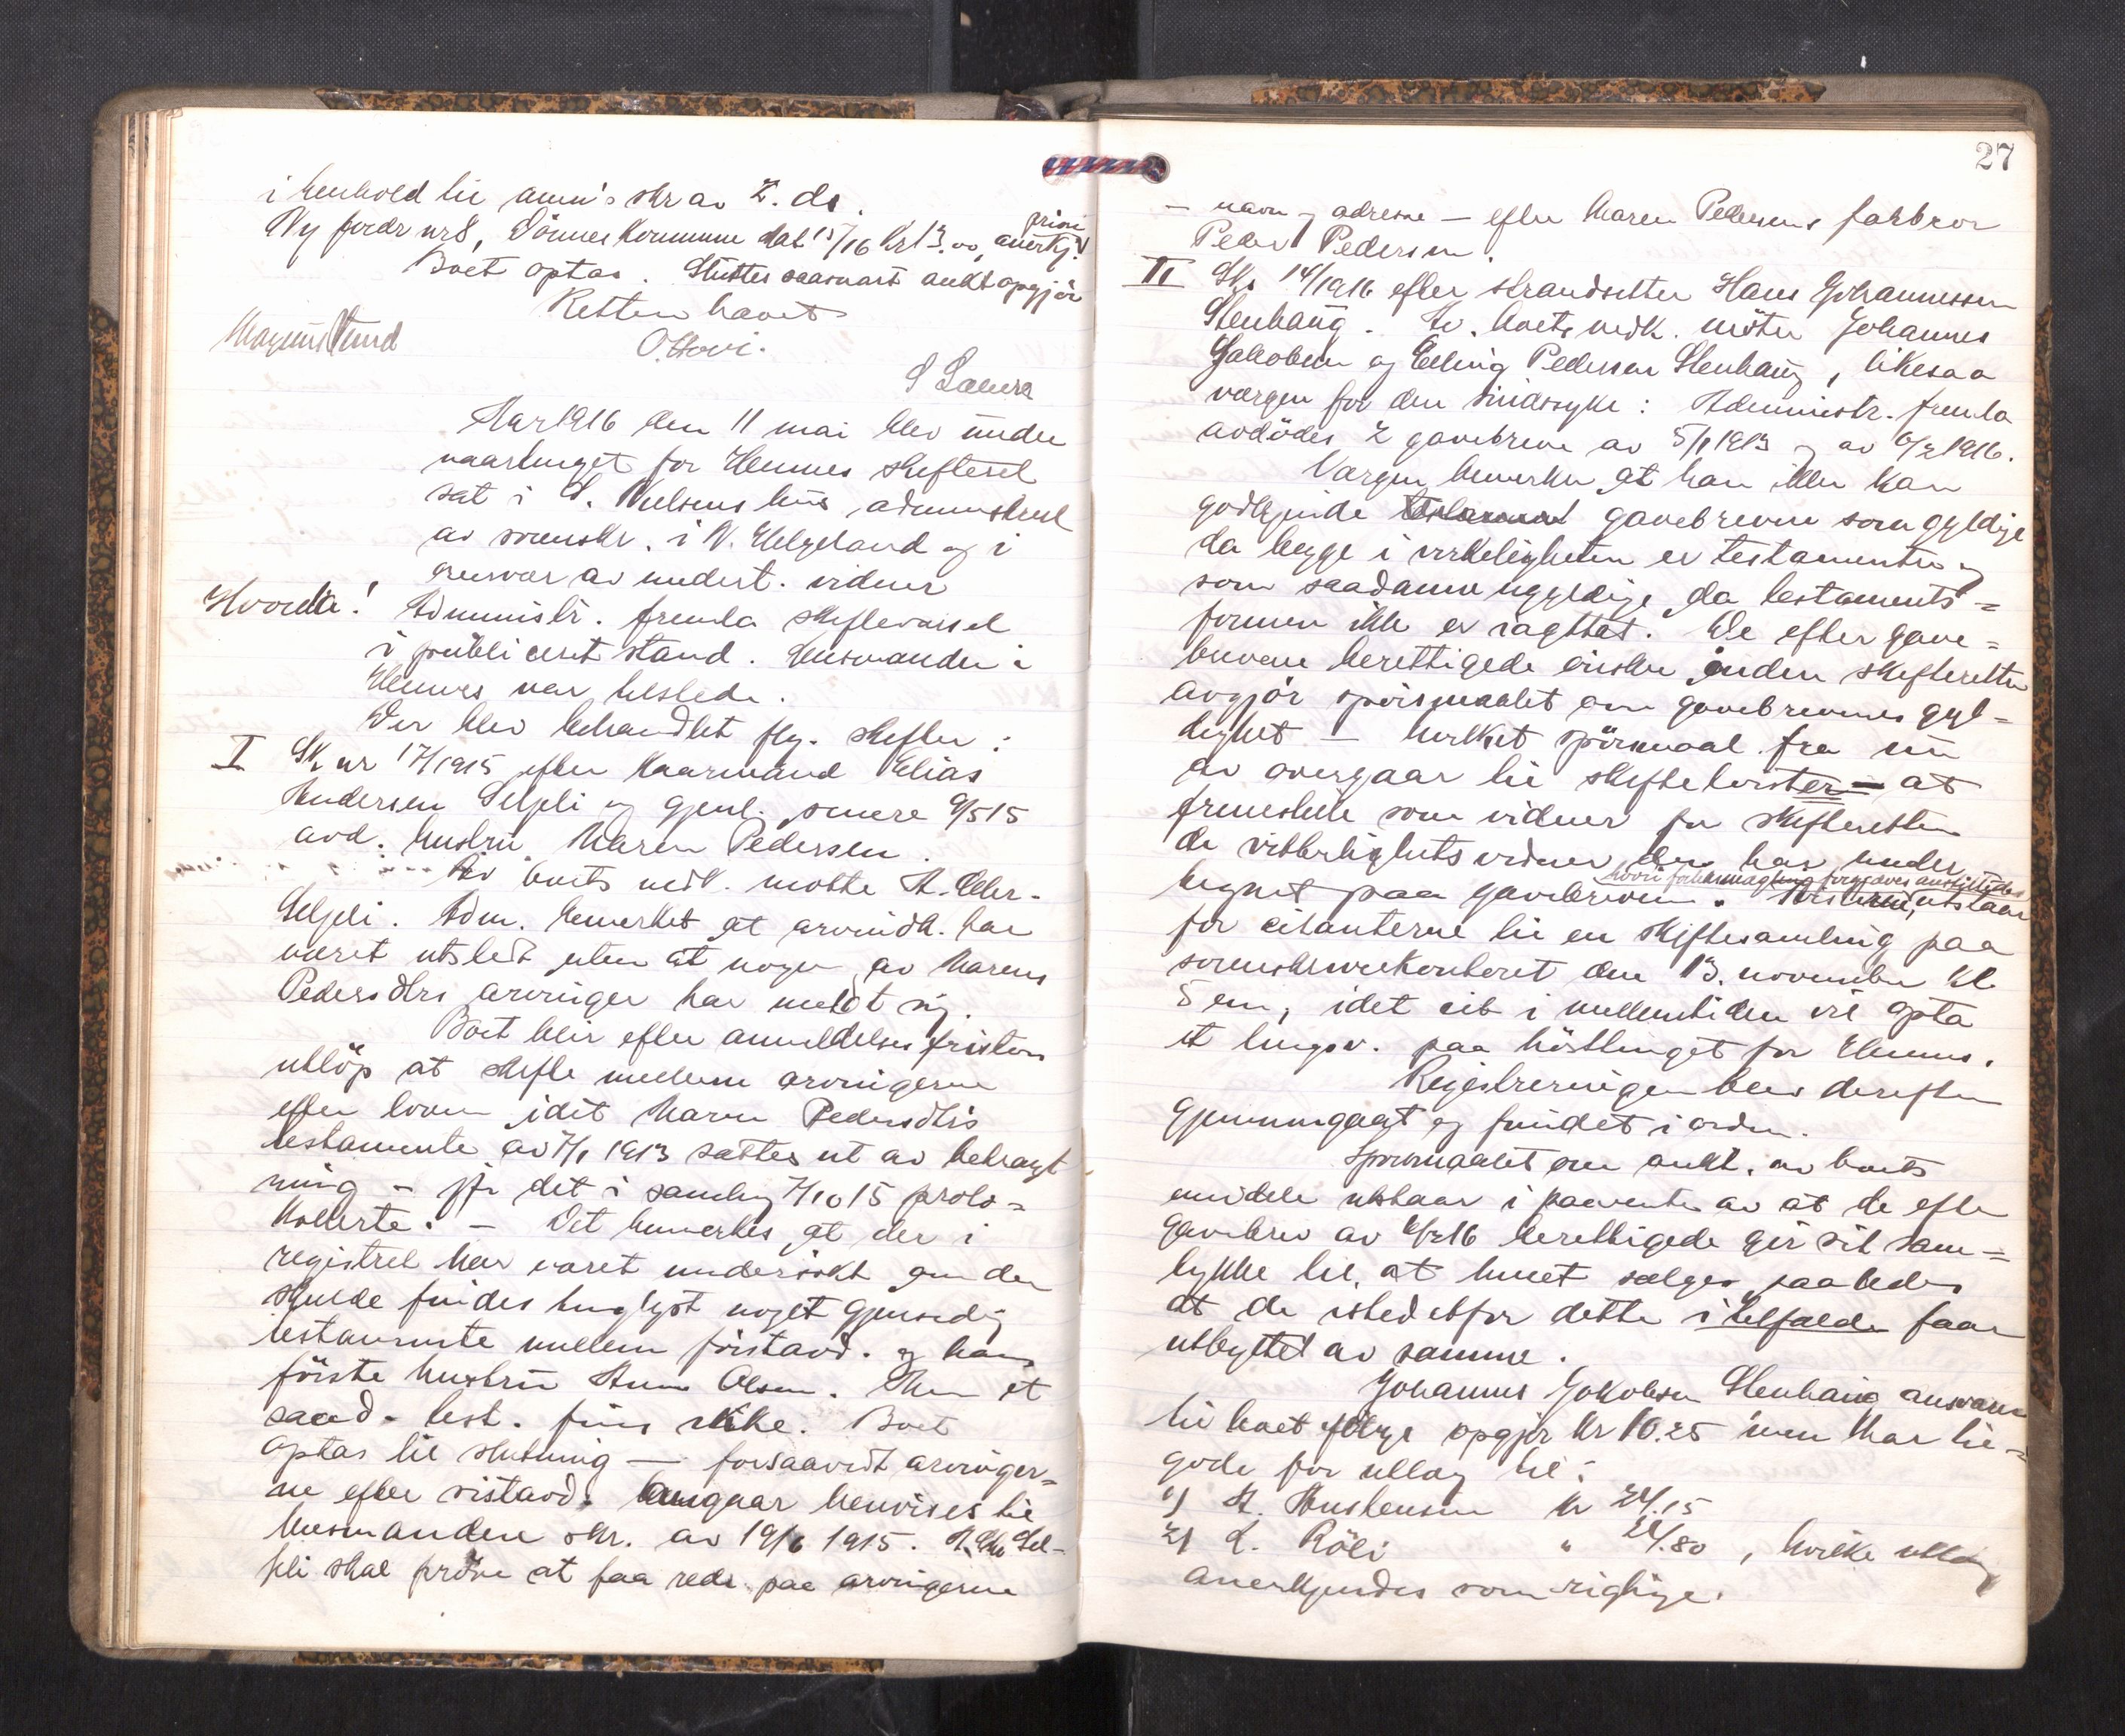 i henhold til anm's skr av 2. ds.
Ny fordr nr 8, Dönnes kommune dat 15/16 kr 13.00, anerkj.
priori
Boet optas. Sluttes saasnart aukt opgjör
Retten hævet
O. Hovi.
Magnus Lund
Aar 1916 den 11 mai blev under
vaartinget for Hemnes skifteret
sat i L. Nielsens hus, administreret
av sorenskr. i N. Helgeland og i
overvær av undert. vidner
Hvorda!
Administr. fremla skiftevarsel
i publiceret stand. Lensmanden i
Hemnes var tilstede.
Der blev behandlet flg. skifter:
I Sk nr 17/1915 efter kaarmand Elias
Andersen Selfjeli og gjenl. senere 9/5 15
avd. hustru Maren Pedersen.
Av boets vedk. mötte A. Elias-
Selfjeli. Adm. bemerket at arvindk. har
været utstedt uten at nogen av Marens
Pedersdtrs arvinger har meldt sig.
Boet blir efter anmeldelsesfristens
utlöp at skifte mellem arvingerne
efter loven idet Maren Pedersdtrs
testamente av 7/1 1913 sættes ut av betragt
ning - jfr det i samling 7/10 15 proto=
kollerte. - Det bemerkes at der i
registret har været undersökt om der
skulde findes tinglyst noget gjensidig
testamente mellem förstavd. og hans
förste hustru Anne Olsen. Men et
saad. test. fins ikke. Boet
optas til slutning - forsaavidt arvinger=
ne efter sistavd. angaar henvises til
lensmandens skr. av 19/6 1915. A. Selfjeli skal pröve at faa rede paa arvingerne
27
- navn og adresse - efter Maren Pedersens farbror
Peder Pedersen.
II Sk. 14/1916 efter strandsitter Hans Johannessen
Stenhaug. Av boets vedk. möter Johannes
Jakobsen og Elling Pedersen Stenhaug, likesaa
værgen for den sindssyke: Administr. fremla
avdödes 2 gavebreve av 5/1 1913 og av 6/2 1916.
Værgen bemerker at han ikke kan
godkjende gavebrevene som gyldige
da begge i virkeligheten er testamenter og
som saadanne ugyldige da testaments=
formen ikke er iagttat. De efter gave=
brevene berettigede önsker önsker skifteretten
avgjör spörsmaalet om gavebrevenes gyl=
dighet - hvilket spörsmaal fra nu
av overgaar til skiftetvister - at
fremstille som vidner for skifteretten
de vitterlighetsvidner der har under
hvori forliksmægling forgjæves anstilledes
tegnet paa gavebrevene. utstaar
for citanterne til en skiftesamling paa
sorenskriverkontoret den 13. november kl.
5 em, idet cit i mellemtiden vil opta
et tingsv. paa hösttinget for Hemnes.
Registreringen blev derefter
gjennemgaat og fundet i orden.
Spörsmaalet om aukt. av boets
midler utstaar i paavente av at de efter
gavebrev av 6/2 16 berettigede gir sit sam=
tykke til at huset sælges saaledes
at de istedetfor dette i tilfælde faar
utbyttet av samme.
Johannes Jakobsen Stenhaug ansvarer
til boet ifölge opgjör kr 10.25 men har til=
gode for utlæg til:
1) A. kr 24.15
2) L. Röli " 24.80, hvilke utlæg
anerkjendes som rigtige.